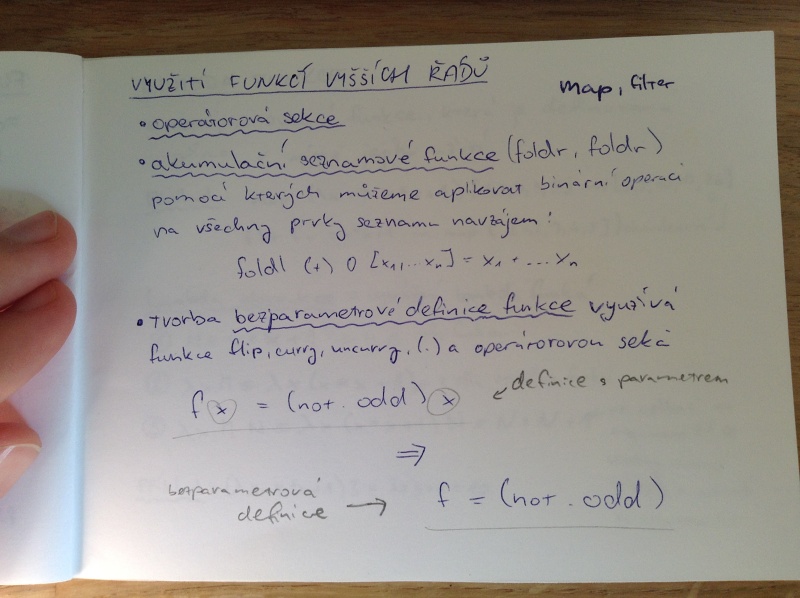 VYUŽITÍ FUNKCÍ VYŠŠÍCH ŘÁDŮ
map, filter
• operátorová sekce
• akumulační seznamové funkce (foldr, foldr)
pomocí kterých můžeme aplikovat binární operaci
na všechny prvky seznamu navzájem:
foldl (+) 0 [x1,...xn] = x1 + ... xn
• tvorba bezparametrové definice funkce využívá
funkce flip, curry, uncurry, (.) a operátorovou sekci
f x = (not . odd) x
definice s parametrem
⇒
bezparametrová
definice →
f = (not . odd)